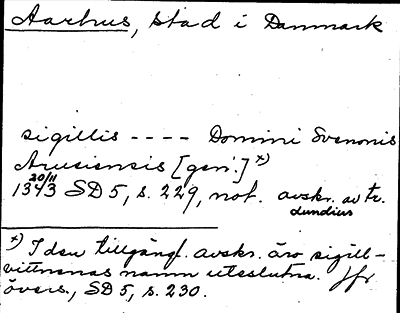 Aarhus, stad i Danmark
sigillis ---- Domini Svenonis
Arusiensis [gen.] *)
20/11
1343 SD 5, s. 229, not. avskr. av tr.
Lundius
*) I den tillgängl. avskr. äro sigill-
vittnenas namn uteslutna. Jfr
övers., SD 5, s. 230.